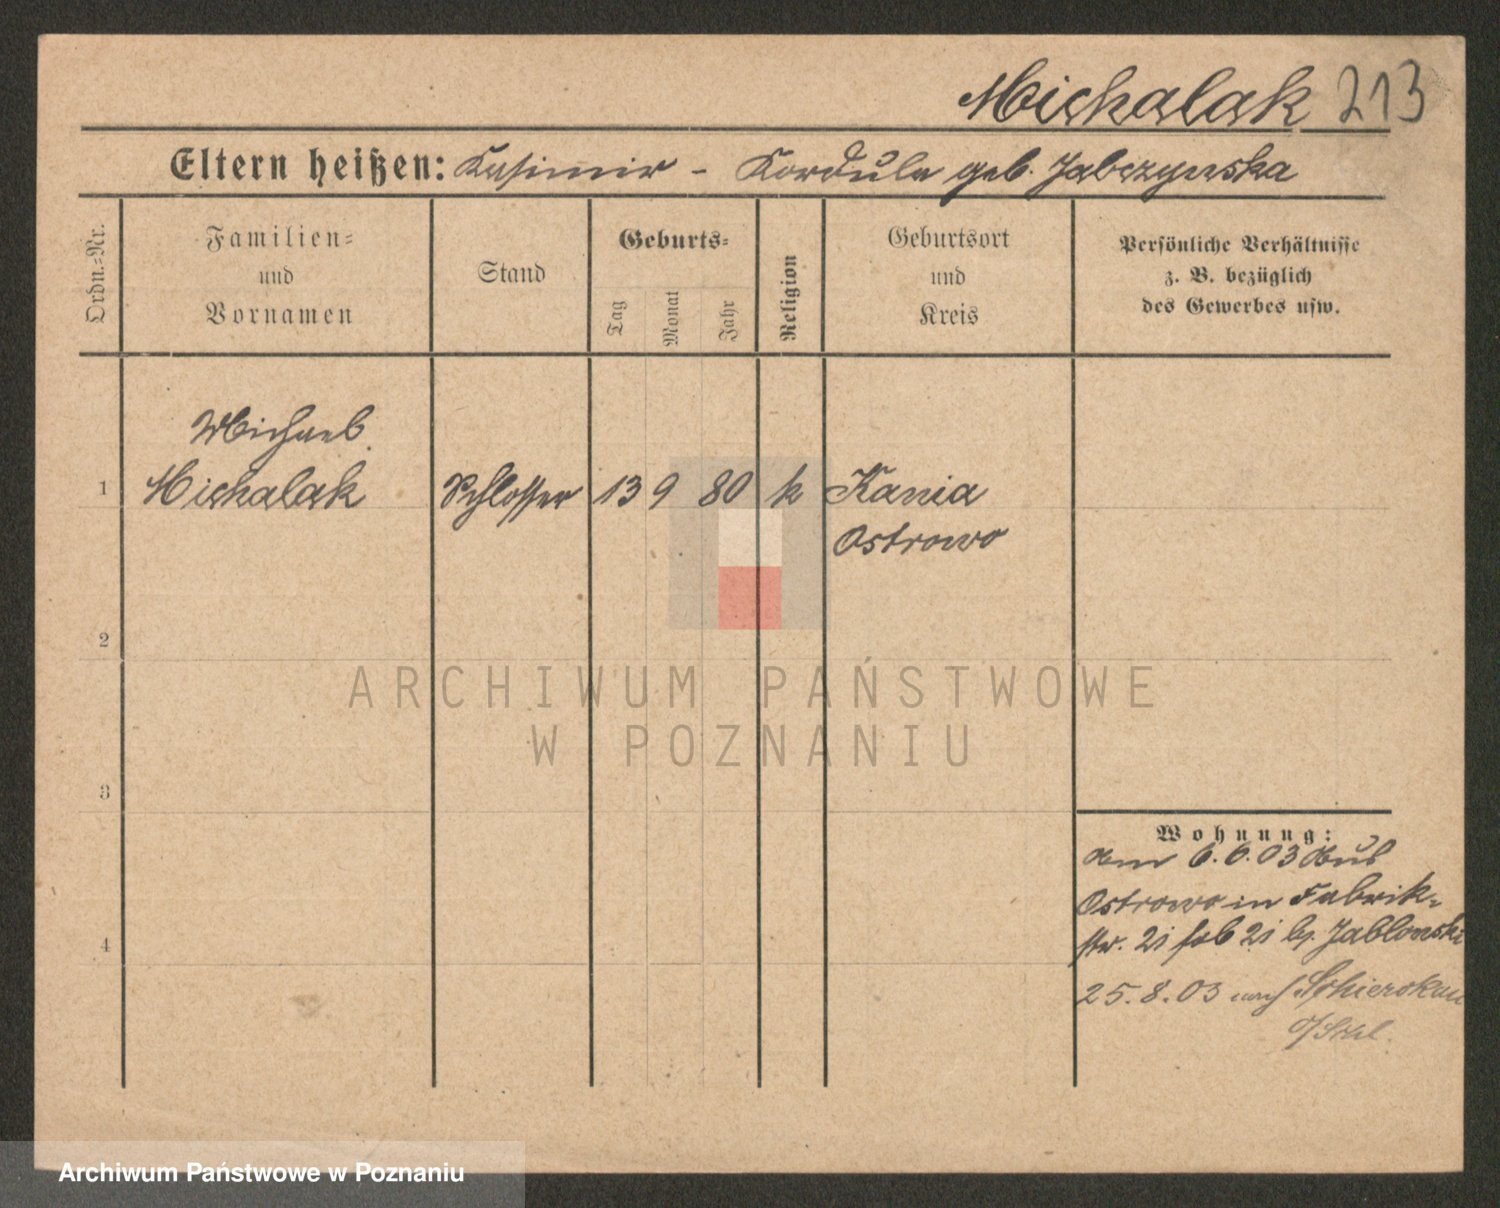 Michalak 213
Eltern heißen: Kasimir - Kordula geb. Jabczynska
Ordn.-Nr.
Familien-
und
Vornamen
Stand
Geburts-
Tag
Monat
Jahr
Religion
Geburtsort
und
Kreis
Persönliche Verhältnisse
z. B. bezüglich
des Gewerbes usw.
Michael
1 Michalak Schlosser 13 9 80 k Kania
Ostrowo
2
ARCHIWUM PAŃSTWOWE
W POZNANIU
3
Wohnung:
am 6.6.03 aus
Ostrowo in Fabrik-
str. 21 b/. Jablonski
25.8.03 nach Schierokau
o/Schl.
4
Archiwum Państwowe w Poznaniu